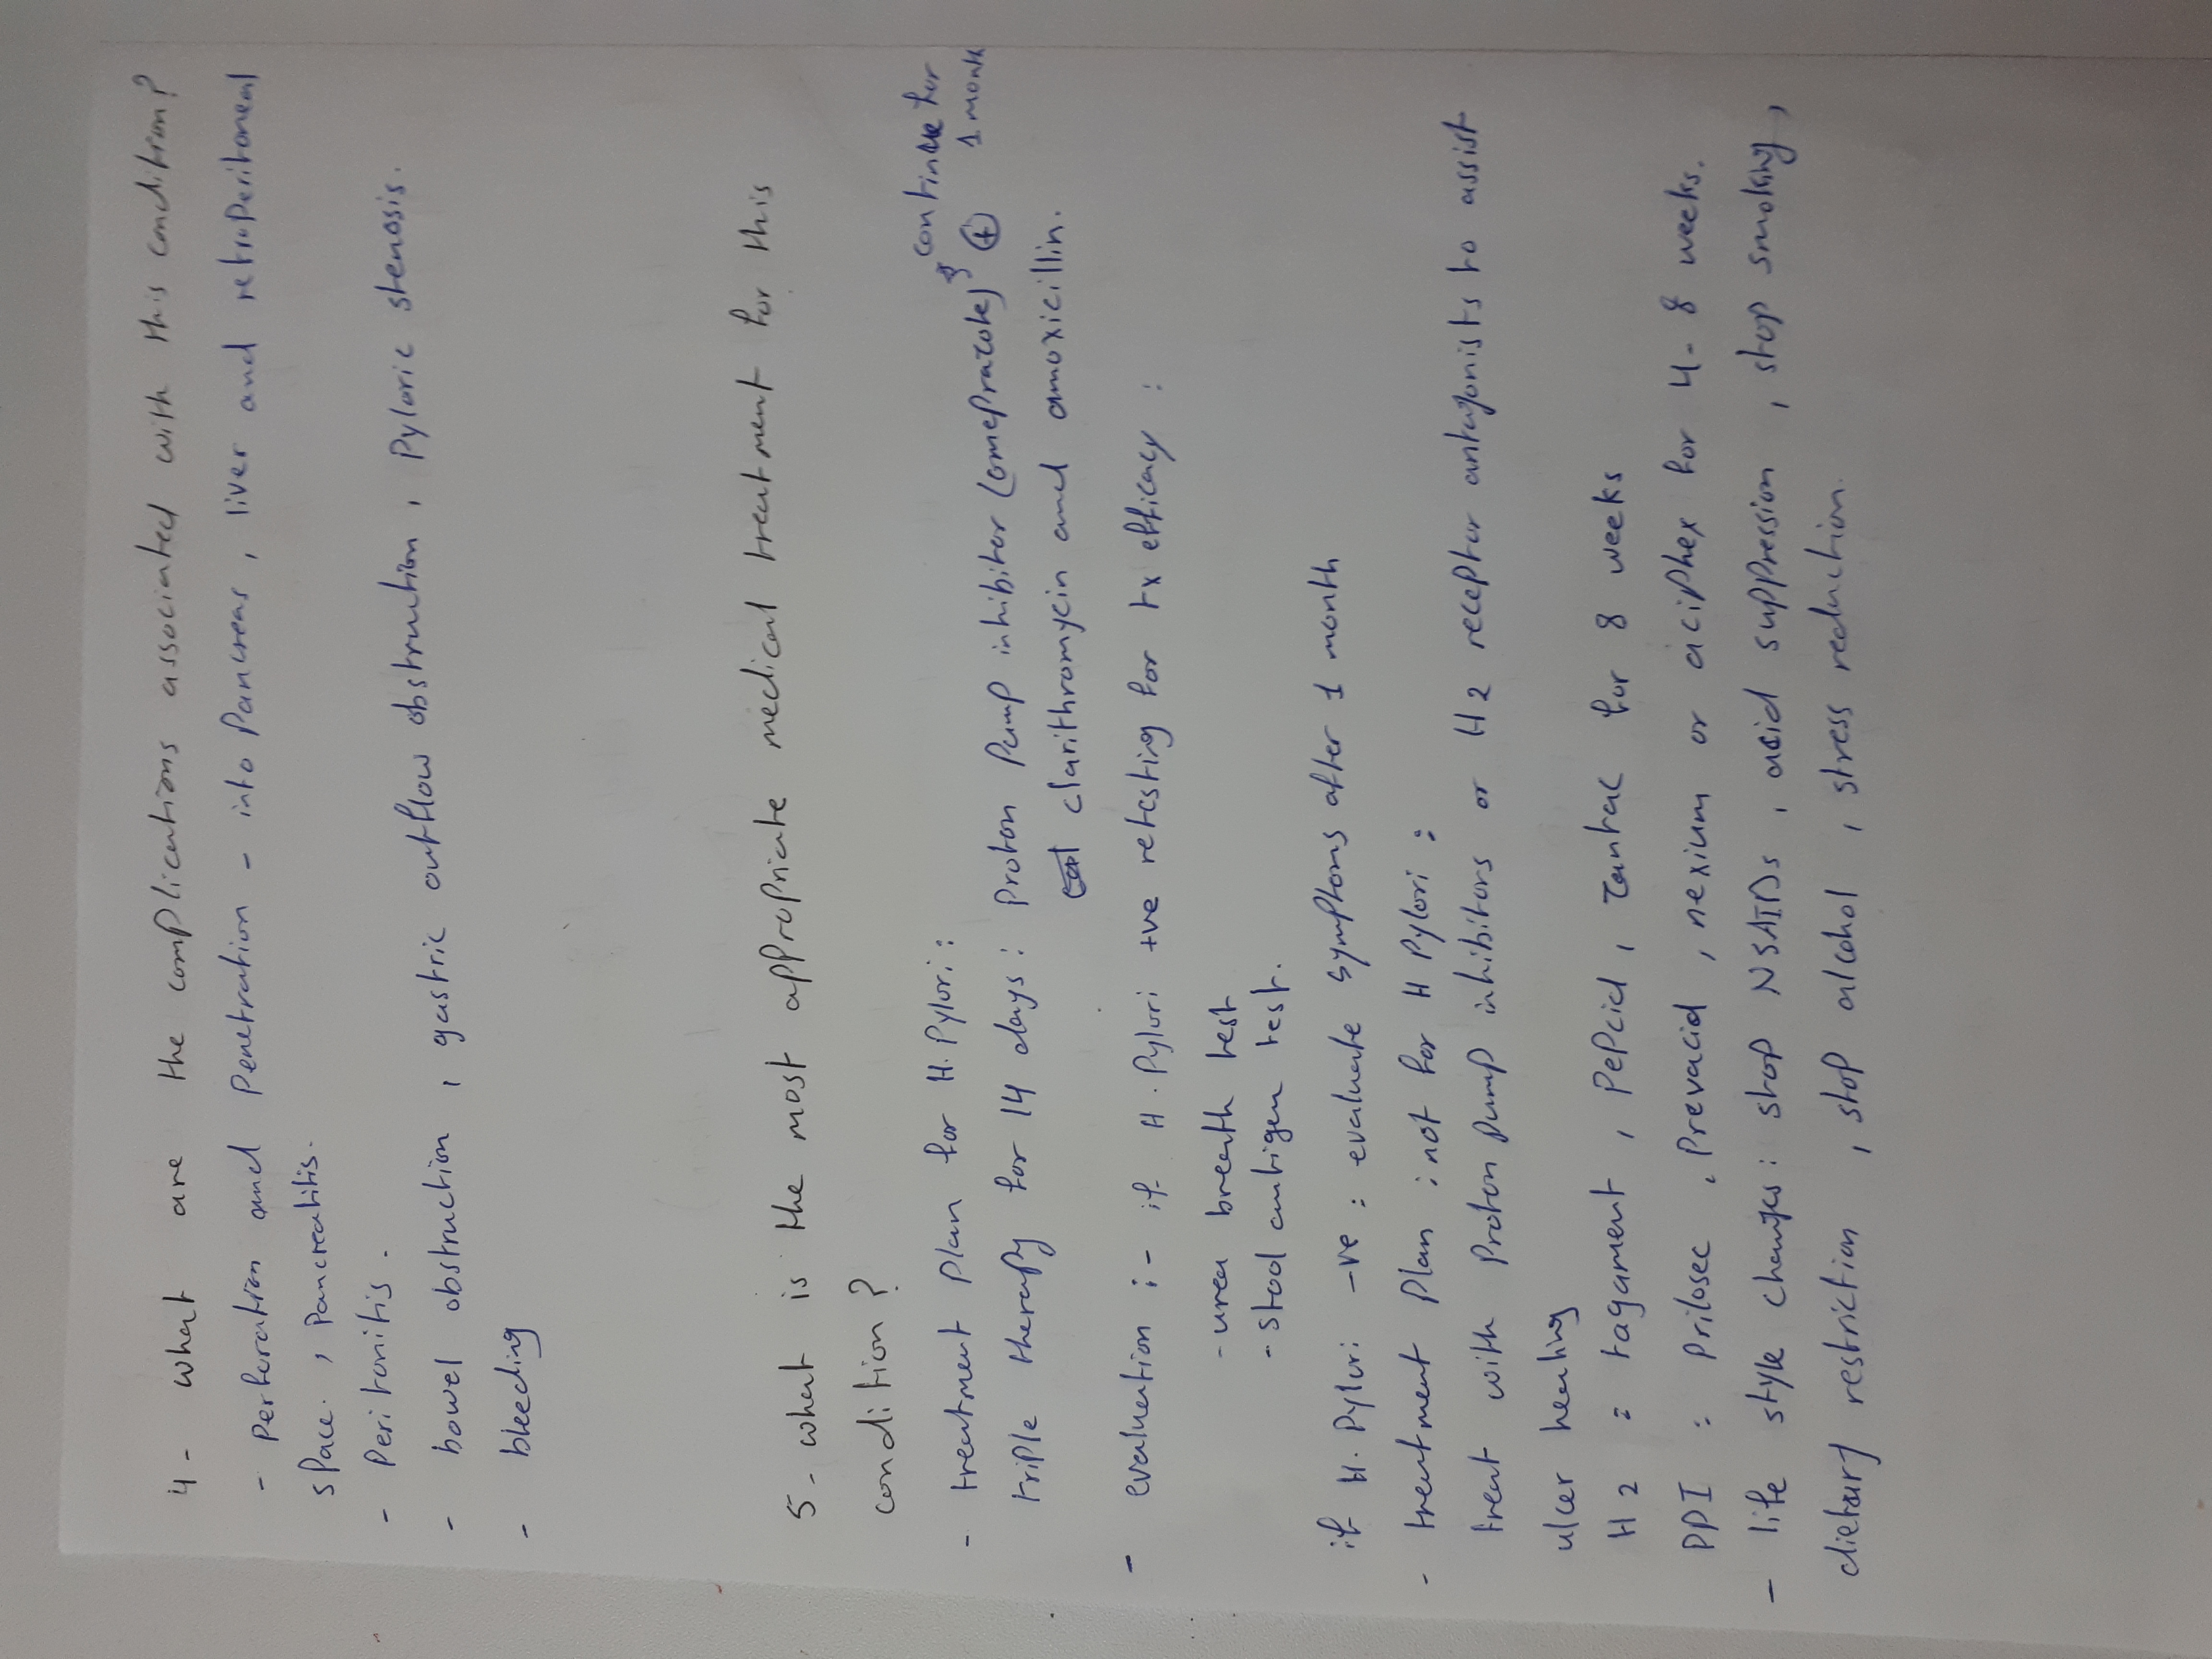 4- what are the complications associated with this condition?
- Perforation and Penetration - into Pancreas, liver and retroperitoneal
space., Pancreatitis.
- Peritonitis.
- bowel obstruction, gastric outflow obstruction, Pyloric stenosis.
- bleeding
5- what is the most appropriate medical treatment for this
condition?
- treatment plan for H.Pylori:
continue for
1 month
triple therapy for 14 days: Proton Pump inhibitor (omeprazole) +
clarithromycin and amoxicillin.
- evaluation :- if H.Pylori +ve retesting for tx efficacy :
- urea breath test
- stool antigen test.
if H.Pylori -ve : evaluate symptoms after 1 month
- treatment plan : not for H Pylori :
treat with Proton pump inhibitors or H2 receptor antagonists to assist
ulcer healing
H2 : tagament, Pepcid, zantac for 8 weeks
PPI : Prilosec, Prevacid, nexium or aciphex for 4-8 weeks.
- life style changes: stop NSAIDs, acid suppression, stop smoking,
dietary restriction, stop alcohol, stress reduction.